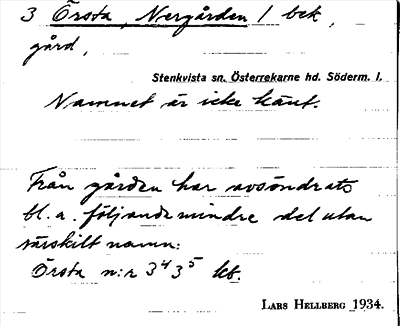 3 Örsta, Nergården 1 bek,
gård,
Stenkvista sn. Österrekarne hd. Söderm. l.
Namnet är icke känt.
Från gården har avsöndrats
bl. a. följande mindre del utan
särskilt namn:
Örsta n:r 3⁴ 3⁵ lht.
LARS HELLBERG 1934.